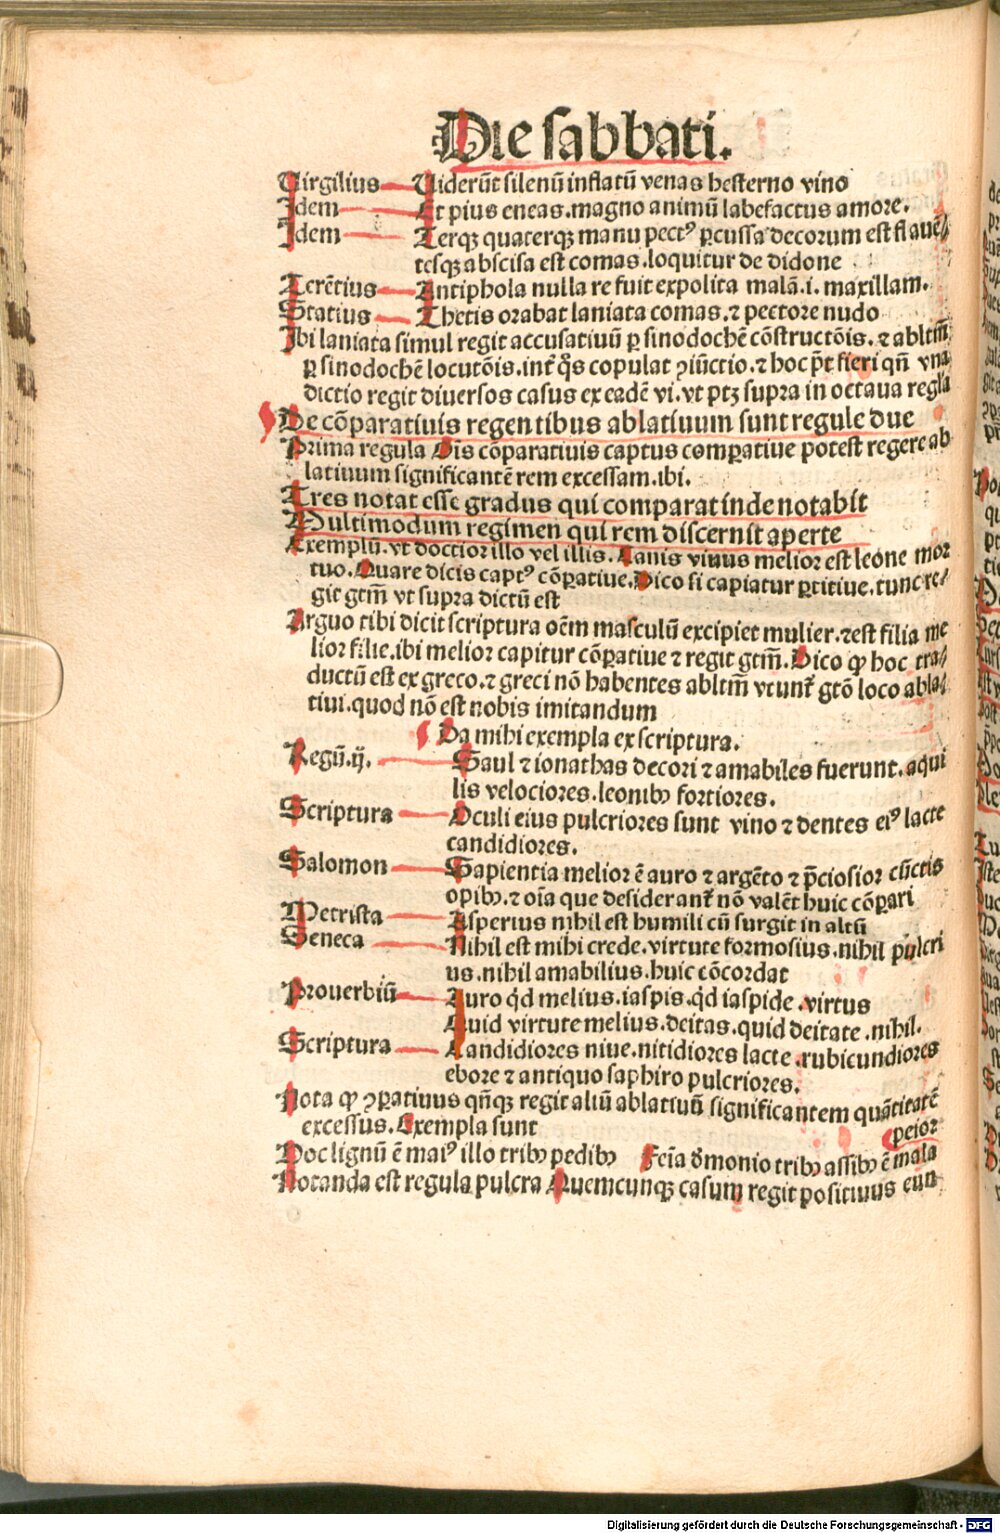 Die sabbati.
Virgilius Viderūt silenū inflatū venas hesterno vino
Idem Et pius eneas.magno animū labefactus amore.
Idem Terqꝫ quaterqꝫ manu pectꝰ ꝑcussa decorum est flauē/
tesqꝫ abscisa est comas.loquitur de didone
Terētius Antiphola nulla re fuit expolita malā.i. maxillam.
Statius Thetis orabat laniata comas.⁊ pectore nudo
Ibi laniata simul regit accusatiuū ꝑ sinodochē cōstructōis.⁊ abltm̄
ꝑ sinodochē locutōis.int̄ q̄s copulat ꝯiūctio.⁊ hoc p̄t fieri qn̄ vna
dictio regit diuersos casus ex eadē vi.vt ptꝫ supra in octaua regla
De cōparatiuis regentibus ablatiuum sunt regule due
Prima regula Oīs cōparatiuis captus comꝑatiue potest regere ab
latiuum significantē rem excessam.ibi.
Tres notat esse gradus qui comparat inde notabit
Multimodum regimen qui rem discernit aperte
Exemplū.vt doctior illo vel illis.Canis viuus melior est leone mor
tuo.Quare dicis captꝰ cōꝑatiue.Dico si capiatur ꝑtitiue.tunc re/
git gtm̄ vt supra dictū est
Arguo tibi dicit scriptura oēm masculū excipiet mulier.⁊est filia me
lior filie.ibi melior capitur cōꝑatiue ⁊ regit gtm̄.Dico ꝙ hoc tra/
ductū est ex greco.⁊ greci nō habentes abltm̄ vtunt̄ gtō loco abla/
tiui.quod nō est nobis imitandum
Da mihi exempla ex scriptura.
Regū.ij. Saul ⁊ ionathas decori ⁊ amabiles fuerunt.aqui
lis velociores.leonibꝫ fortiores.
Scriptura Oculi eius pulcriores sunt vino ⁊ dentes eiꝰ lacte
candidiores.
Salomon Sapientia melior ē auro ⁊ argēto ⁊ p̄ciosior cūctis
opibꝫ.⁊ oīa que desiderant̄ nō valēt huic cōꝑari
Metrista Asperius nihil est humili cū surgit in altū
Seneca Nihil est mihi crede.virtute formosius.nihil pulcri
us.nihil amabilius.huic cōcordat
Prouerbiū Auro qd̄ melius.iaspis.qd̄ iaspide.virtus
Quid virtute melius.deitas.quid deitate.nihil.
Scriptura Candidiores niue.nitidiores lacte.rubicundiores
ebore ⁊ antiquo saphiro pulcriores.
Nota ꝙ ꝯꝑatiuus qn̄qꝫ regit aliū ablatiuū significantem quātitatē
excessus.Exempla sunt peior
Hoc lignū ē maiꝰ illo tribꝫ pedibꝫ Feīa dmonio tribꝫ assibꝫ ē mala
Notanda est regula pulcra Quemcunqꝫ casum regit positiuus eun
Digitalisierung gefördert durch die Deutsche Forschungsgemeinschaft - DFG